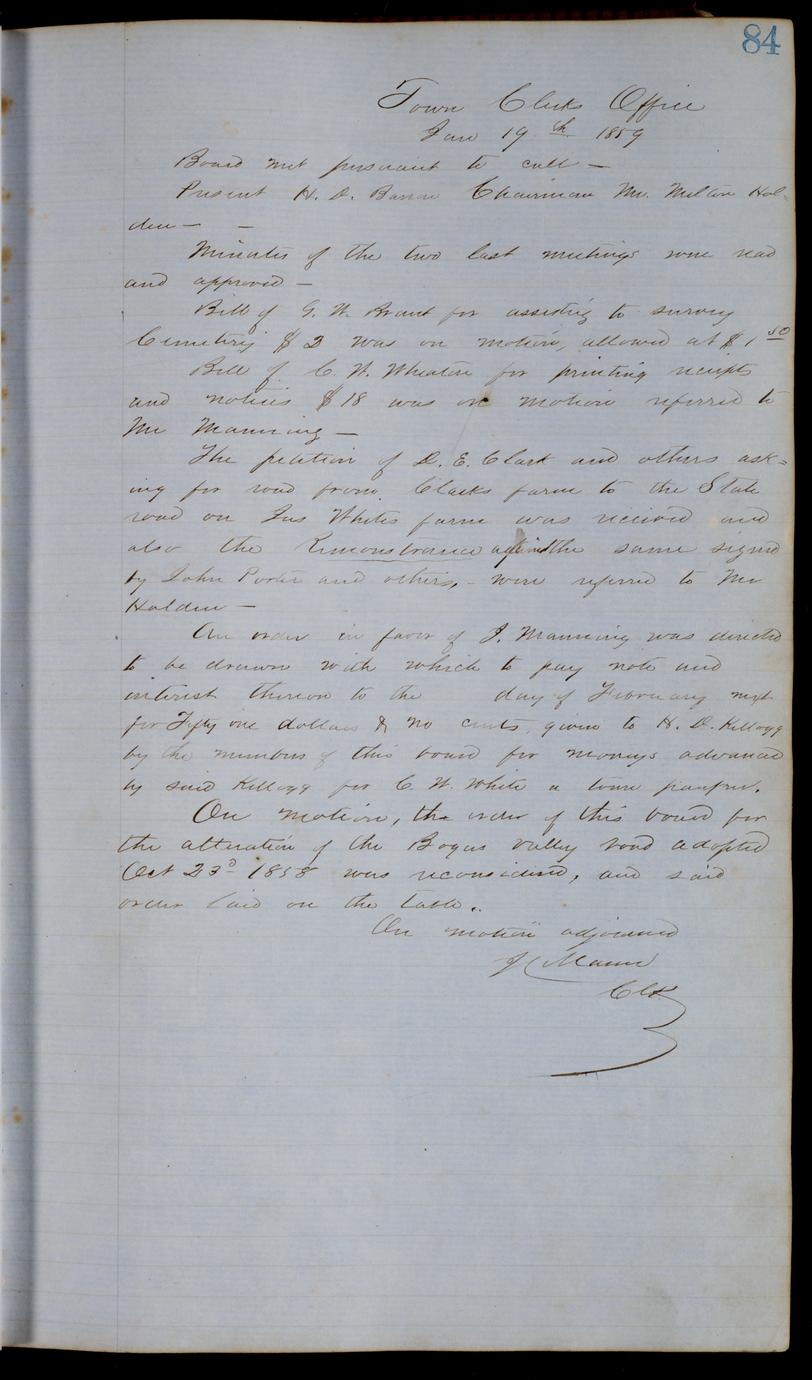 84
Town Clerks Office
Jan 19th 1859
Board met pursuant to call —
Present H. D. Barron Chairman Mr. Milton Hol-
den — —
Minutes of the two last meetings were read
and approved —
Bill of G. W. Brant for assisting to survey
Cemetery $2 was on motion, allowed at $1 50
Bill of C. W. Wheaton for printing receipts
and notices $18 was on motion referred to
Mr Manning —
The petition of D. E. Clark and others ask=
ing for road from Clarks farm to the State
road on Jas Whites farm was received and
also the Remonstrance against the same signed
by John Porter and others, - were referred to Mr
Holden —
An order in favor of J. Manning was directed
to be drawn with which to pay note and
interest thereon to the day of February next
for Fifty one dollars & no cents, given to H. D. Kellogg
by the members of this board for moneys advanced
by said Kellogg for C. W. White a town pauper.
On motion, the order of this board for
the alteration of the Bogus valley road adopted
Oct 23d 1858 was reconsidered, and said
order laid on the table..
On motion adjourned
Clk